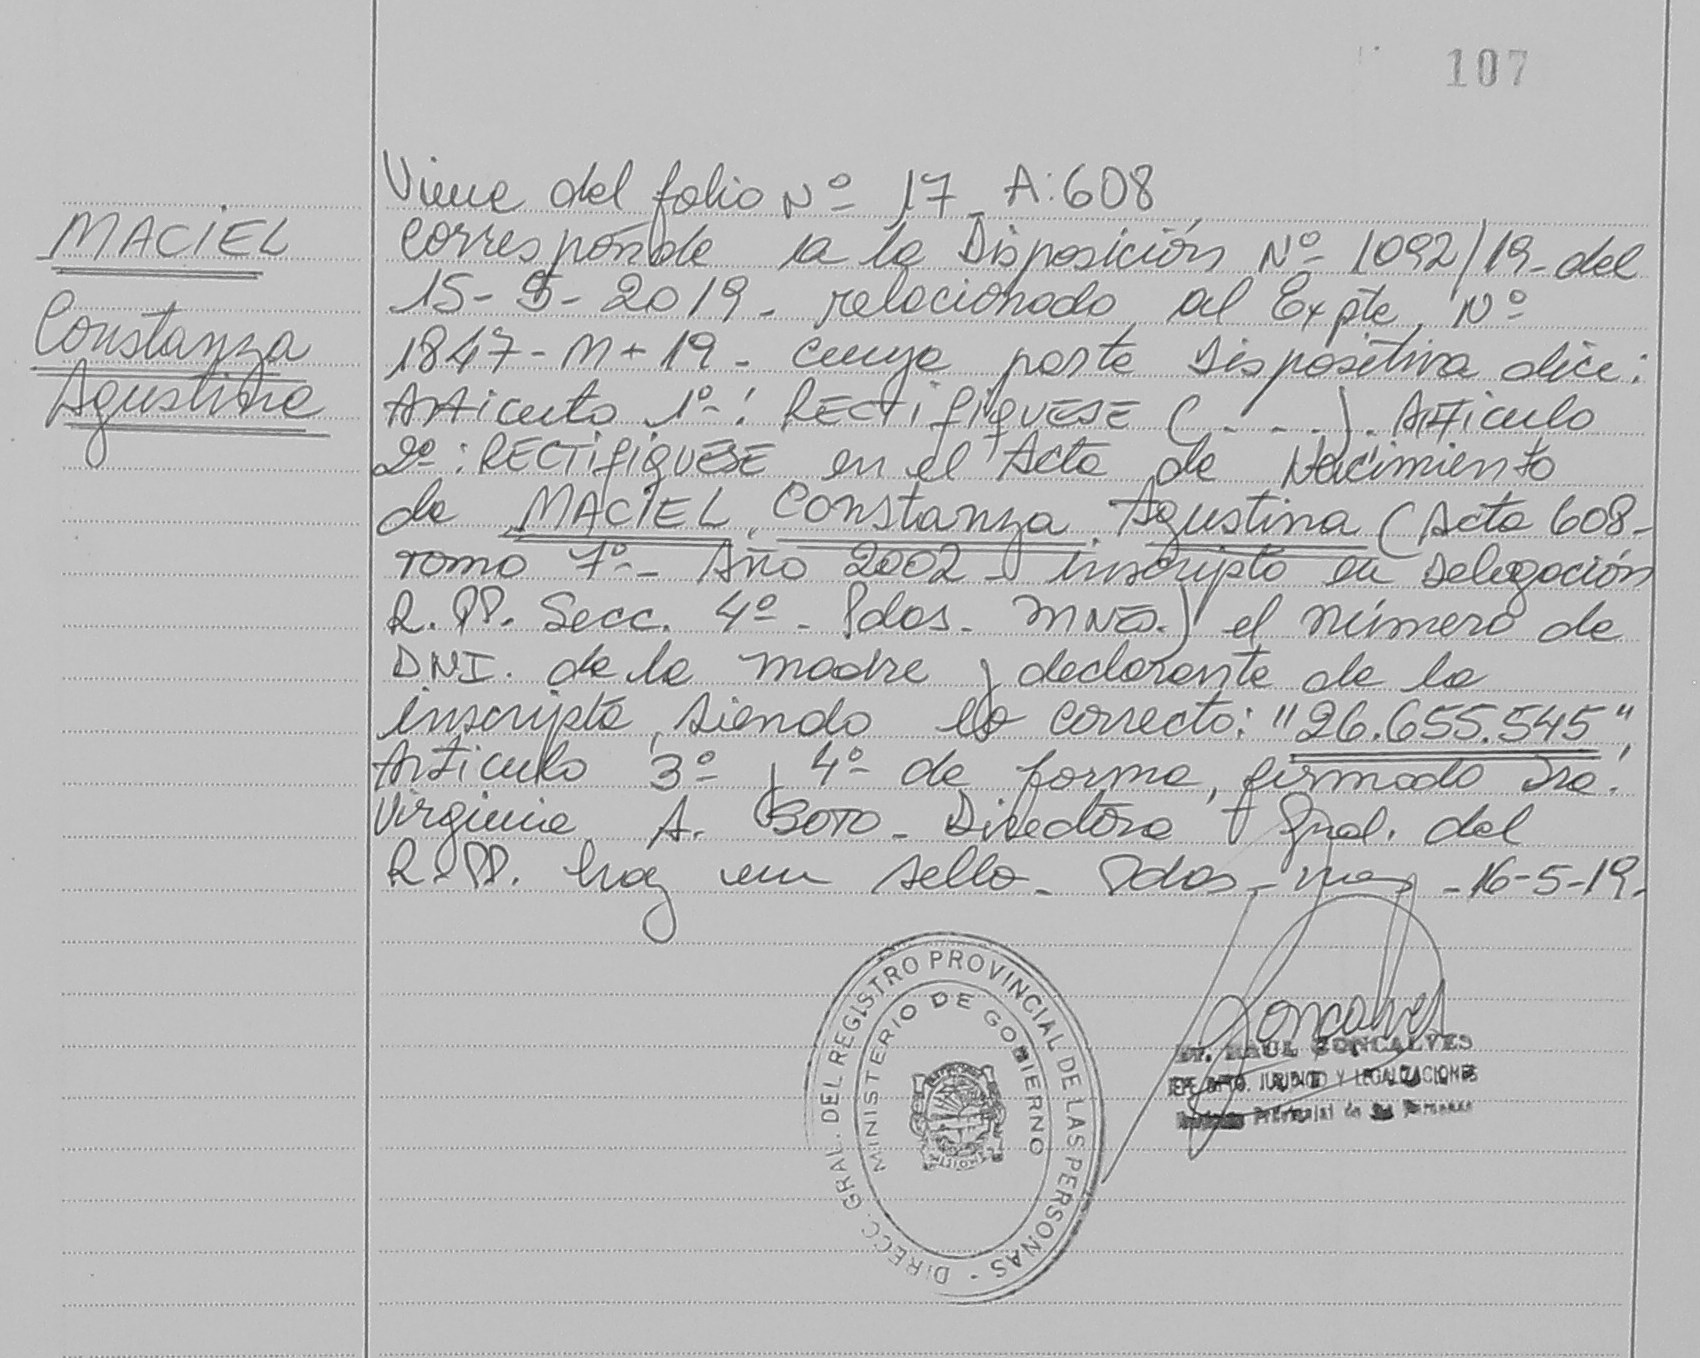 107
MACIEL
Constanza
Agustina
Viene del folio Nº 17 A:608
Corresponde a la Disposición Nº 1092/19- del
15-5-2019- relacionado al Expte. Nº
1847-M-19- cuya parte dispositiva dice:
Articulo 1º-: RECTIFIQUESE (----). Articulo
2º: RECTIFIQUESE en el Acta de Nacimiento
de MACIEL, Constanza Agustina (Acta 608-
Tomo 7º- Año 2002- inscripta en Delegación
R.PP. Secc. 4º- Pdas- MNES.) el número de
DNI. de la madre y declarante de la
inscripta, siendo lo correcto: "26.655.545".
Articulo 3º y 4º de forma, firmado Dra.
Virginia A. Soto- Directora Gral. del
R.PP. hay un sello- Pdas- mnes -16-5-19-
DIRECC. GRAL. DEL REGISTRO PROVINCIAL DE LAS PERSONAS -
MINISTERIO DE GOBIERNO
Goncalves
Dr. RAUL GONCALVES
JEFE DPTO. JURIDICO Y LEGALIZACIONES
Provincial de las Personas